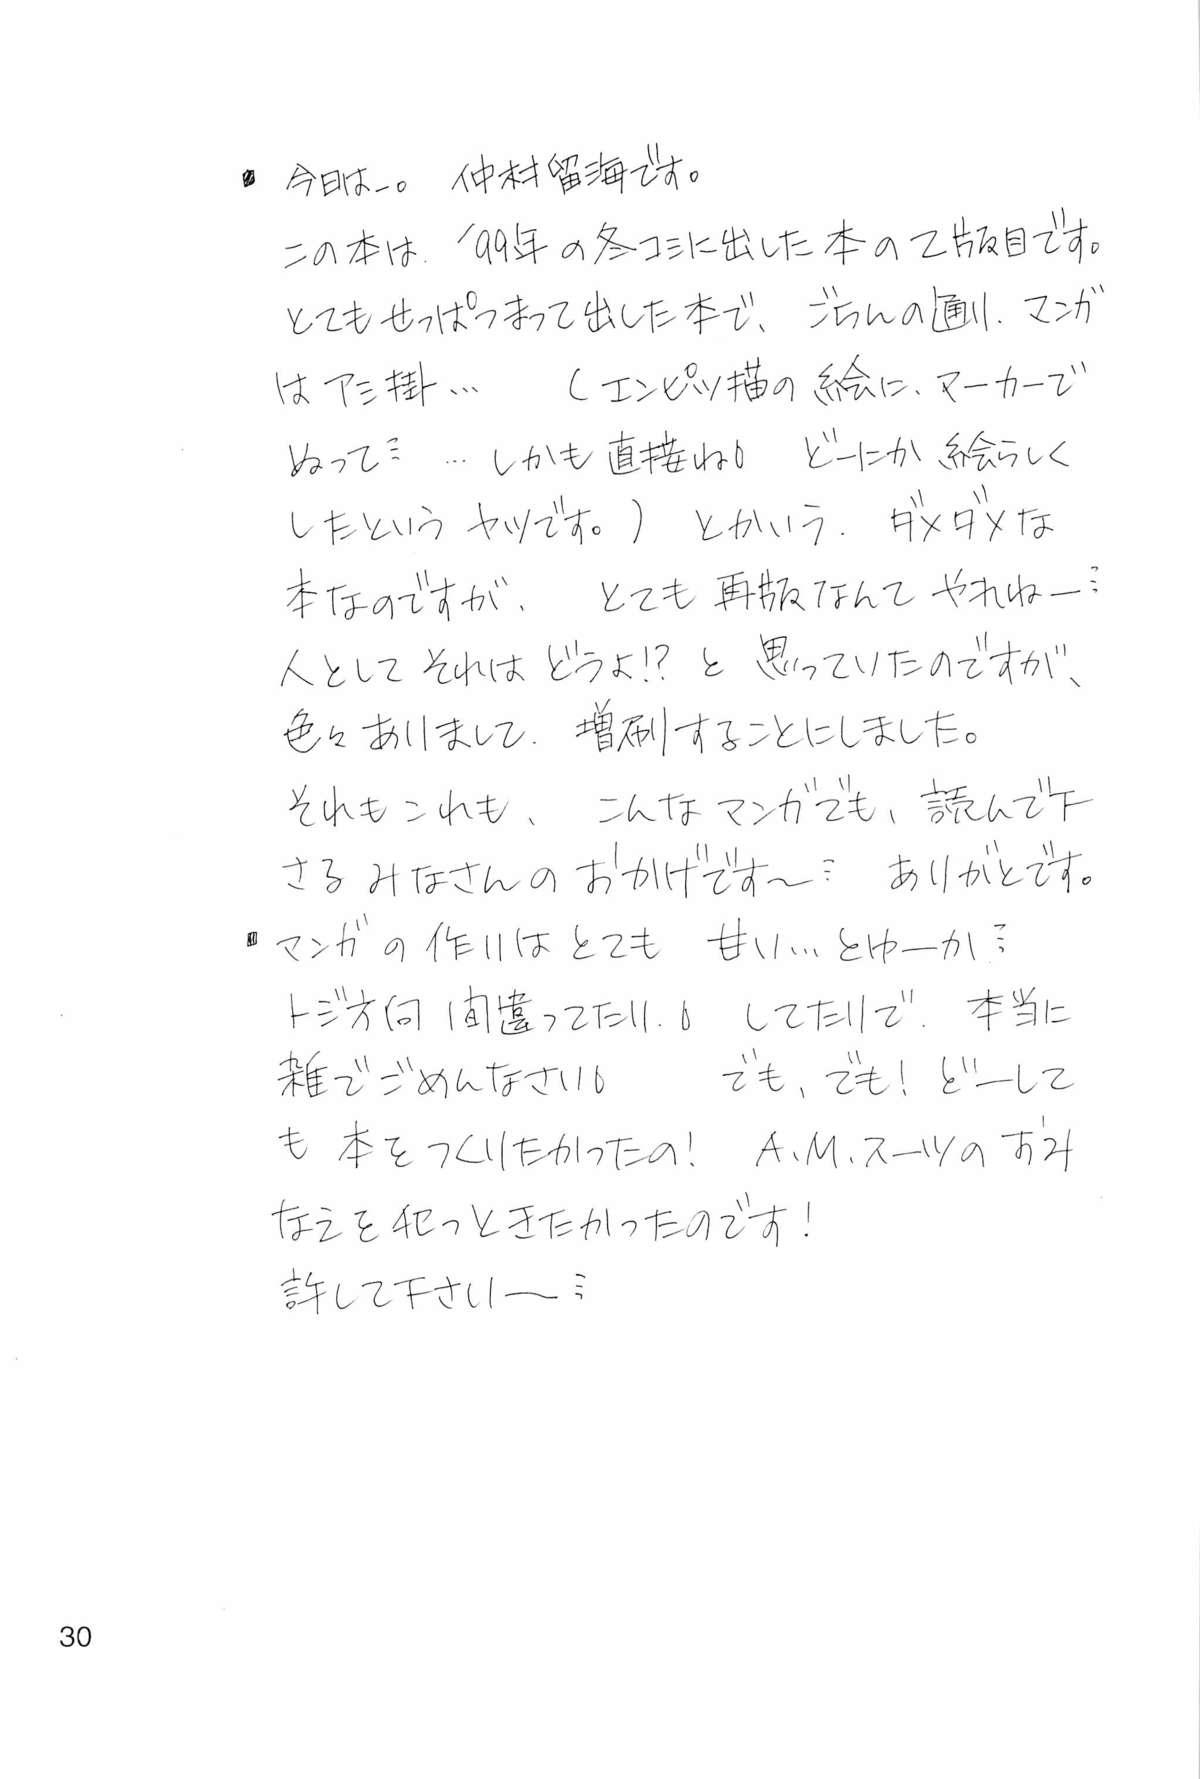 ・今日は～。 仲村留海です。
この本は、'99年の冬コミに出した本の2版目です。
とてもせっぱつまって出した本で、ごらんの通り、マンガ
はアミ掛… (エンピツ描の絵に、マーカーで
ぬって… …しかも直接ね どーにか絵らしく
したというヤツです。) とかいう、ダメダメな
本なのですが、 とても再版なんてやれねー…
人としてそれはどうよ!?と思っていたのですが、
色々ありまして、増刷することにしました。
それもこれも、 こんなマンガでも、読んで下
さるみなさんのおかげです～… ありがとです。
・マンガの作りはとても 甘い…とゆーか…
トジ方向間違ってたり、 してたりで、本当に
雑でごめんなさい でも、でも! どーして
も本をつくりたかったの! A.M.スーツのおみ
なえを犯っときたかったのです!
許して下さい～…
30